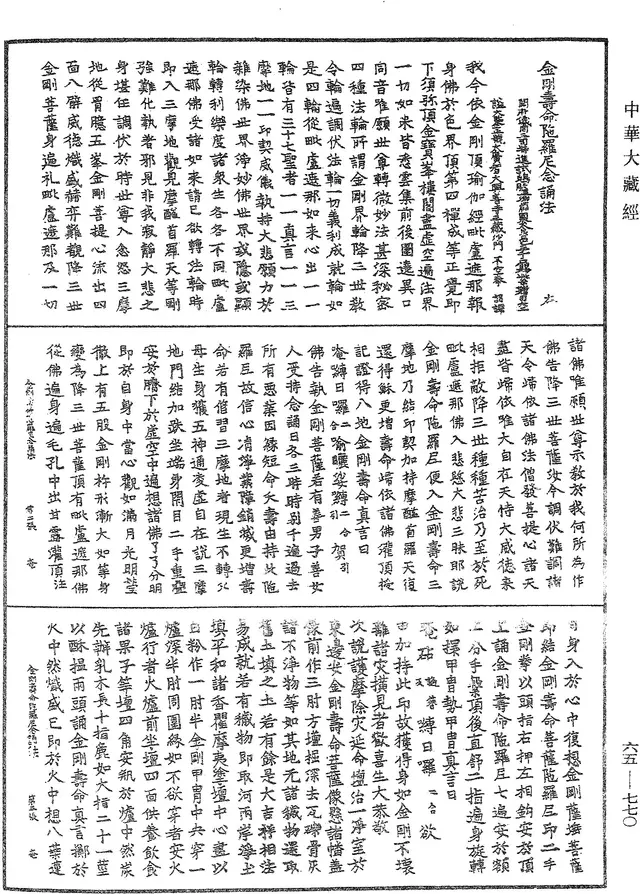 中華大藏經
金剛壽命陁羅尼念誦法 右
開府儀同三司特進試鴻臚卿肅國公食邑三千户賜紫贈司空
謚大鑒正號大廣智大興善寺三藏沙門不空奉 詔譯
我今依金剛頂瑜伽經毗盧遮那報
身佛於色界頂第四禪成等正覺即
下須弥頂金寶峯樓閣盡虛空遍法界
一切如来皆悉雲集前後圍遶異口
同音唯願世尊轉微妙法甚深秘密
四種法輪所謂金剛界輪降三世教
令輪遍調伏法輪一切義利成就輪如
是四輪從毗盧遮那如来心出一一
輪皆有三十七聖者一一真言一一三
摩地一一印契威儀執持大悲願力於
雜染佛世界淨妙佛世界或隱或顯
輪轉利樂度諸衆生各各不同毗盧
遮那佛受諸如来請已欲轉法輪時
即入三摩地觀見摩醯首羅天等剛
強難化執著邪見非我寂靜大悲之
身堪任調伏於時世尊入忿怒三摩
地從胷臆五峯金剛菩提心流出四
面八臂威德熾盛赫弈難覩降三世
金剛菩薩身遍礼毗盧遮那及一切
諸佛唯願世尊示教於我何所為作
佛告降三世菩薩汝今調伏難調諸
天令歸依諸佛法僧發菩提心諸天
盡皆歸依唯大自在天恃大威德來
相拒敵降三世種種苦治乃至於死
毗盧遮那佛入悲愍大悲三昧耶說
金剛壽命陁羅尼便入金剛壽命三
摩地乃結印契加持摩醯首羅天復
還得穌更增壽命歸依諸佛灌頂授
記證得八地金剛壽命真言曰
唵縛日囉二合喻曬娑嚩引二合賀引
佛告執金剛菩薩若有善男子善女
人受持念誦日各三時時別千遍過去
所有惡業因緣短命夭壽由持此陁
羅尼故信心清淨業障銷滅更增壽
命若有修習三摩地者現生不轉父
母生身獲五神通凌虛自在說三摩
地門結加趺坐端身閉目二手重疊
安於臍下於虛空中遍想諸佛了了分明
即於自身中當心觀如滿月光明瑩
徹上有五股金剛杵形漸大如等身
變為降三世菩薩頂有毗盧遮那佛
從佛遍身遍毛孔中出甘露灌頂注
自身入於心中復想金剛薩埵菩薩
即結金剛壽命菩薩陁羅尼印二手
金剛拳以頭指右押左相鉤安於頂
上誦金剛壽命陁羅尼七遍安於額
上分手繫頂後直舒二指遍身旋轉
如擐甲胄勢甲胄真言曰
唵砧 縛日囉二合欲
由加持此印故獲得身如金剛不壞
離諸灾橫見者歡喜生大恭敬
次說護摩除灾延命壇治一淨室於
東邊安金剛壽命菩薩像懸諸幡盖
像前作三肘方壇掘深去瓦礫骨灰
諸不淨物等如其地无諸穢物還取
舊土填之土若有餘是大吉祥相法
易成就若有穢物即取河兩岸淨土
填平和諸香瞿摩夷塗壇中心畫以
白粉作一肘半金剛甲胄中央穿一
爐深半肘周圍緣如不欲穿者安火
爐行者火爐前坐壇四面供養飲食
諸果子等壇四角安瓶於爐中然炭
先辦乳木長十指麁如大指二十一莖
以酥揾兩頭誦金剛壽命真言擲於
火中然熾盛已即於火中想八葉蓮
六五——七七〇